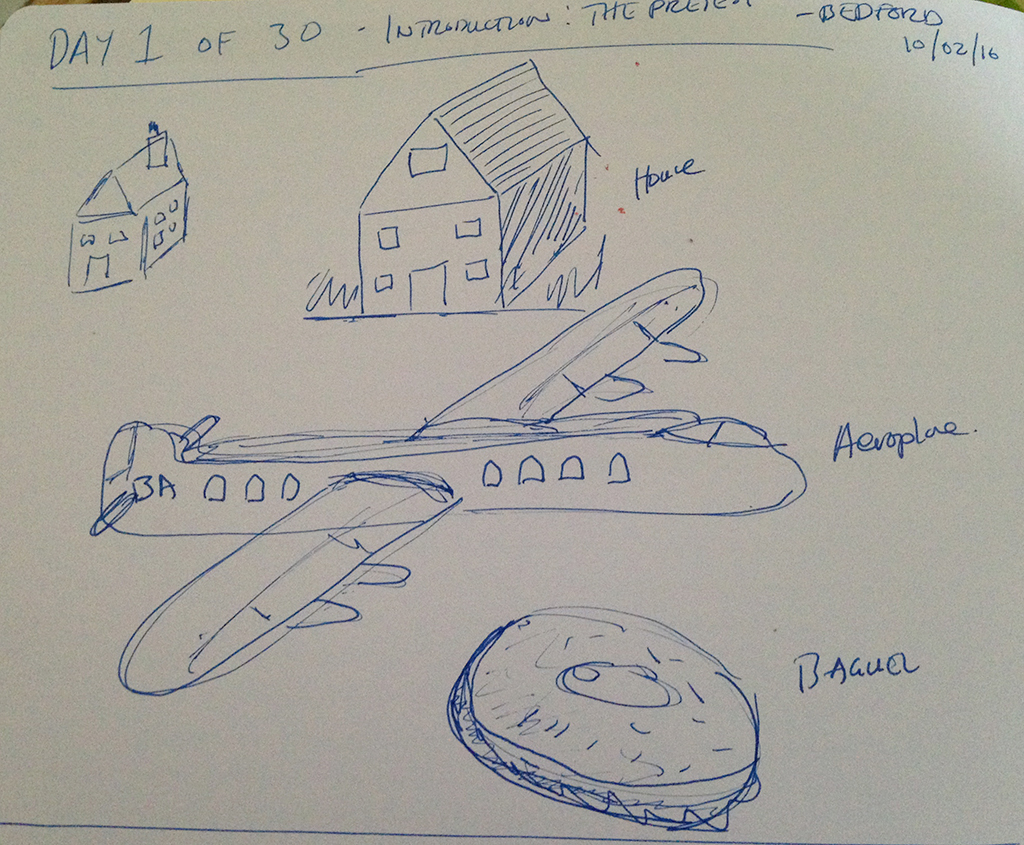 DAY 1 OF 30 - INTRODUCTION: THE PRETEST - BEDFORD
10/02/16
House
Aeroplane.
BA
BAGUEL